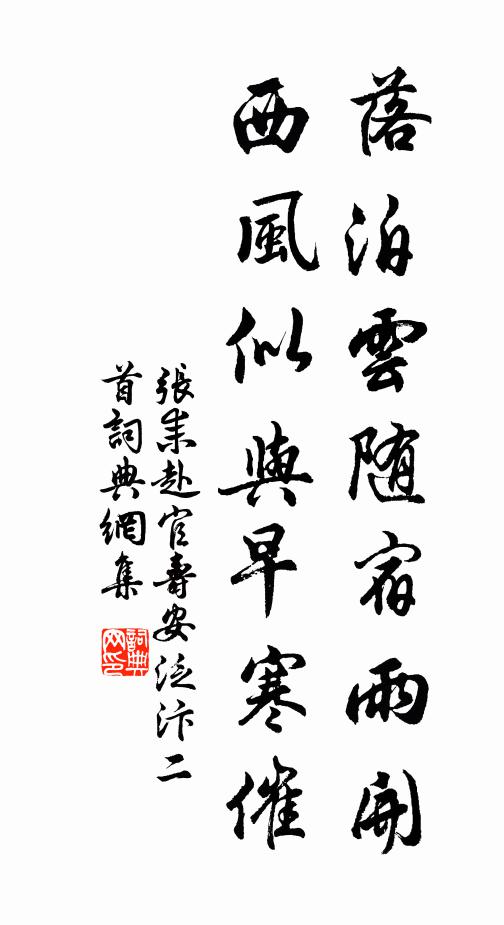 落泊雲随宿雨開
西風似與早寒催
張耒赴官壽安泛汴二
首詞典網集
詞典網印